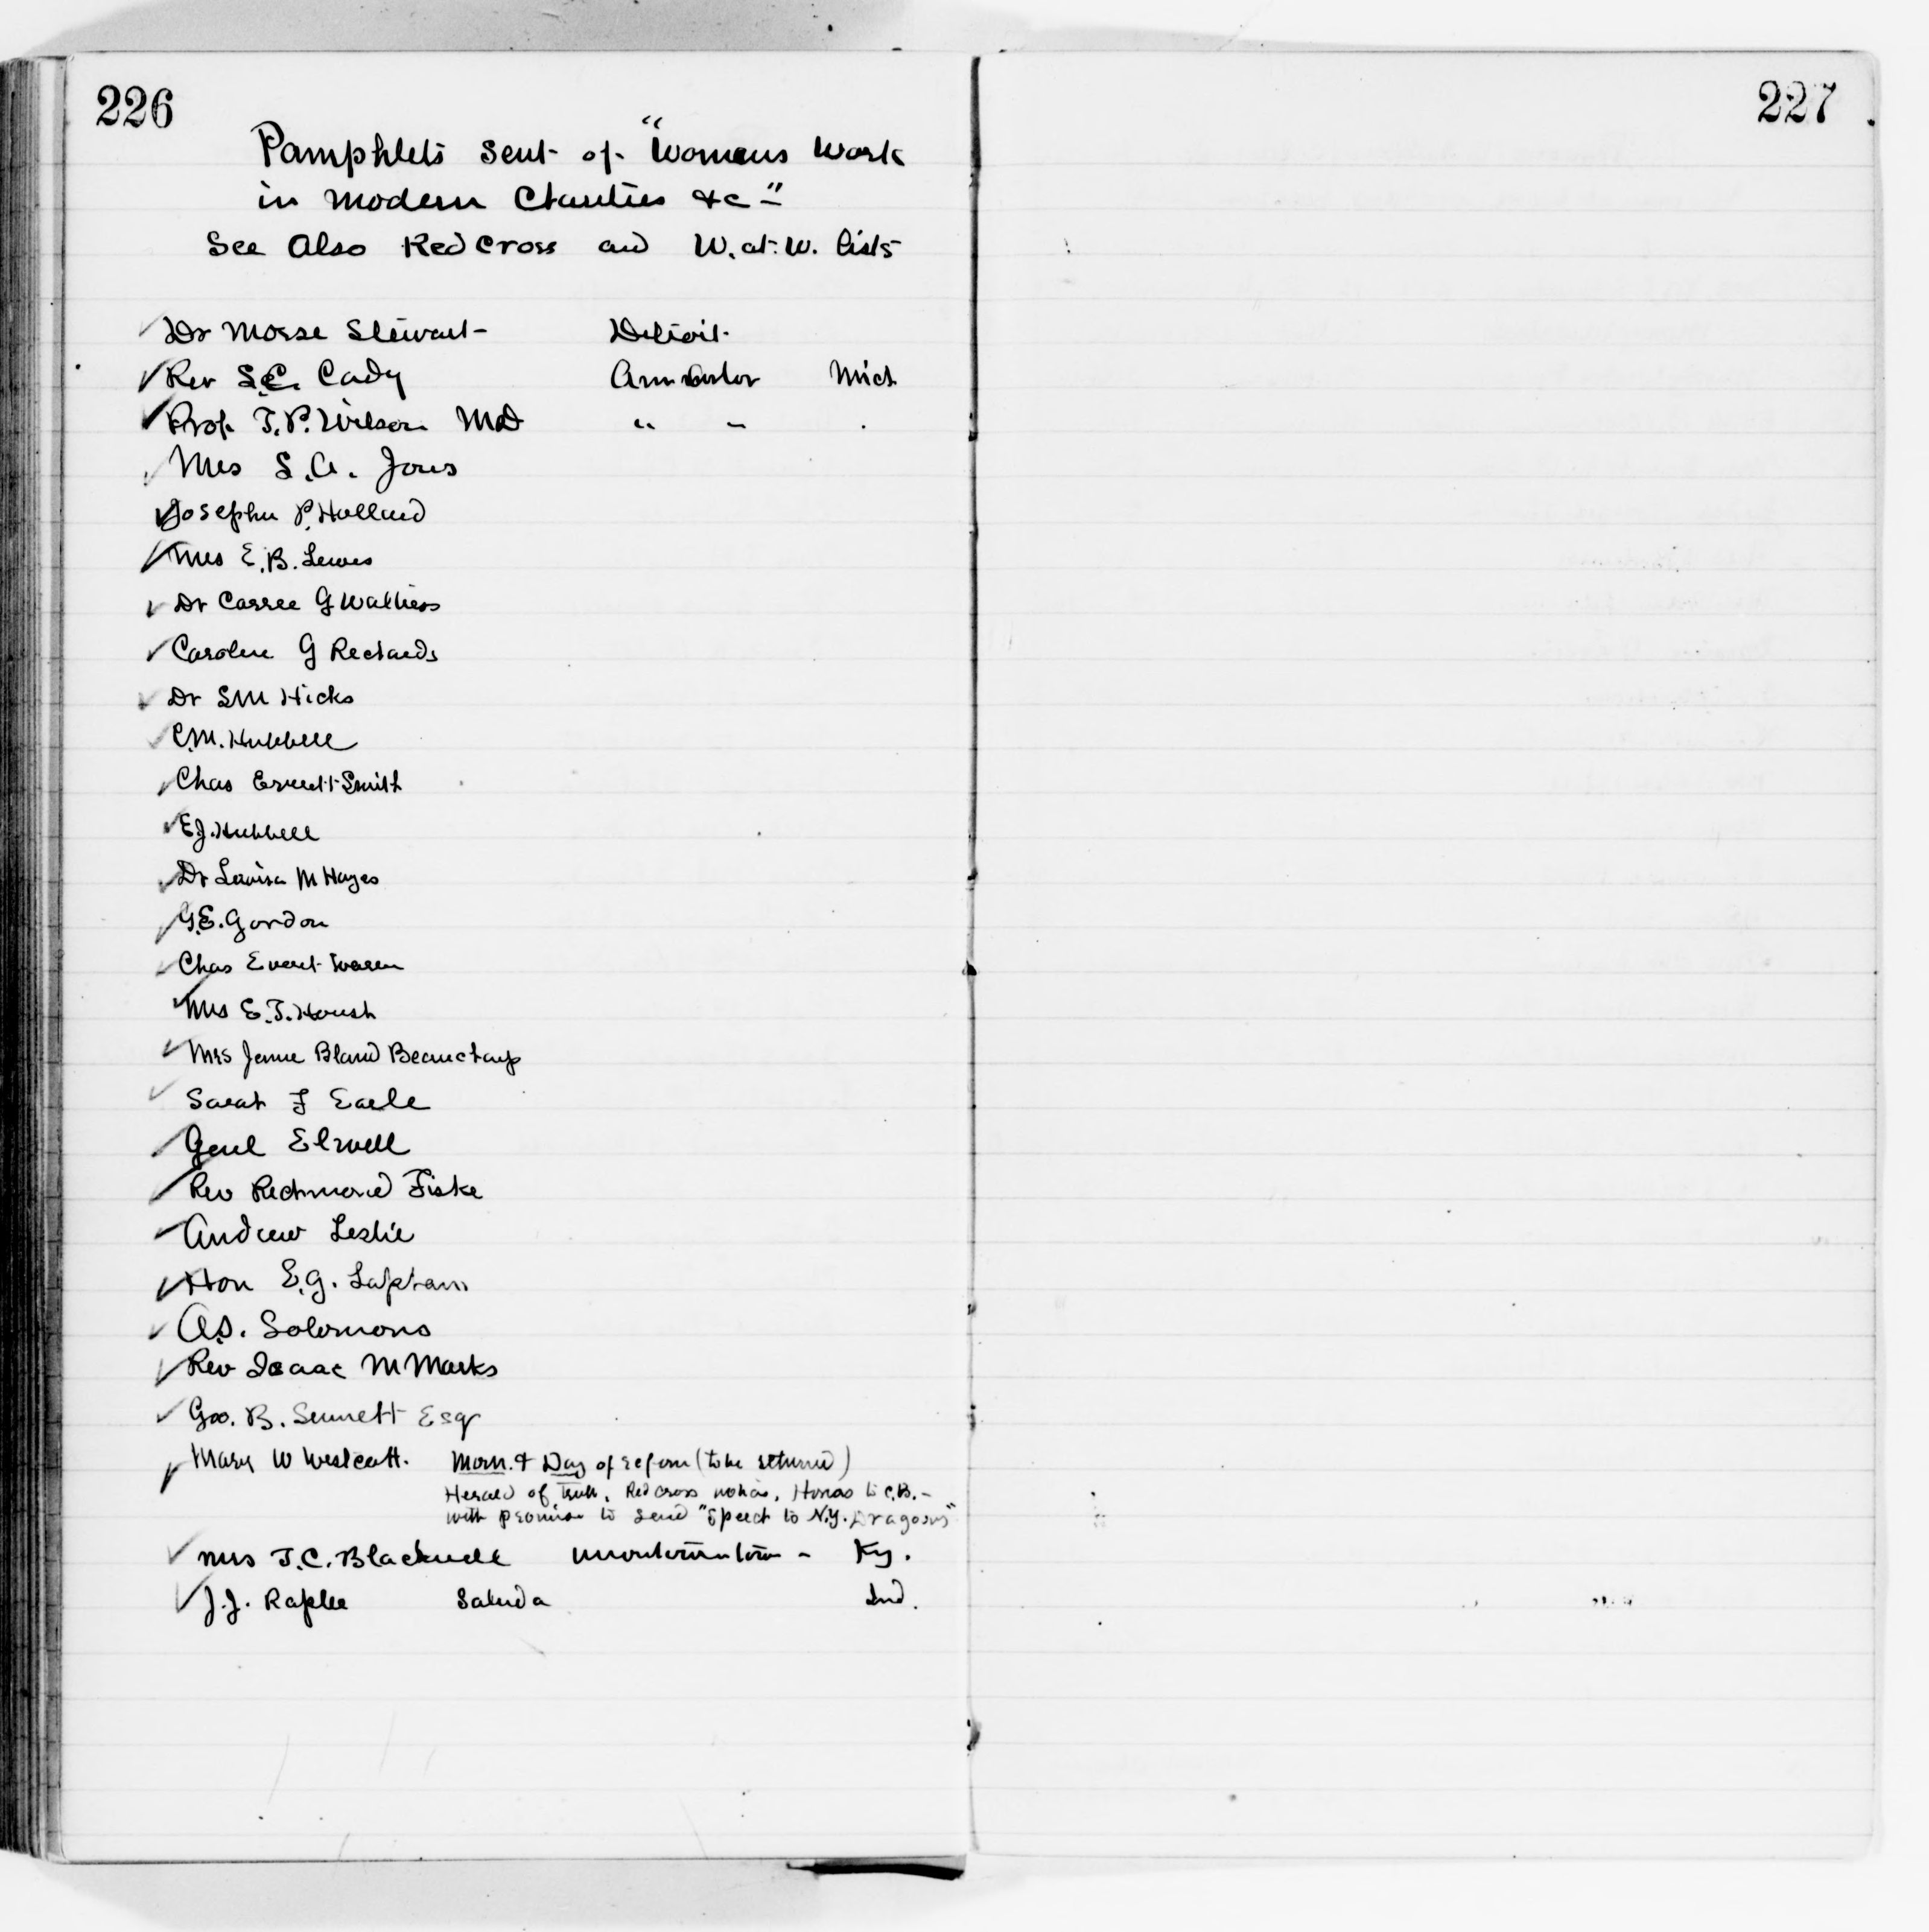 226
227
Pamphlets sent of "Womens Work
in Modern Charities &c"
See Also Red Cross and W. at. W. lists
Dr Morse Stewart Detroit
Rev S.C. Cady Ann Arbor Mich
Prof. T.P. Wilson MD " "
Mrs S.A. Jones
Josephine P. Holland
Mrs E.B. Lewis
Dr Carrie G
Caroline G Richards
Dr SM Hicks
C.M. Hubbell
Chas Everett Smith
E.J. Hubbell
Dr Louisa M Hayes
G.E. Gordon
Chas Everet Waren
Mrs E.T. Housh
Mrs Jennie Bland Beauchamp
Sarah F Earle
Genl Elwell
Rev Richmond Fiske
Andrew Leslie
Hon E.G. Lapham
A.S. Solomons
Rev Isaac M Marks
Geo. B. Sennett Esq
Mary W Westcott. Morn. & Day of reform (to be returned)
Herald of Truth, Red Cross notices, Honors to C.B. -
with promise to send "Speech to N.Y. Dragoons"
Mrs T.C. Blackwell Uniontown - Ky.
J.J. Raplee Saluda Ind.